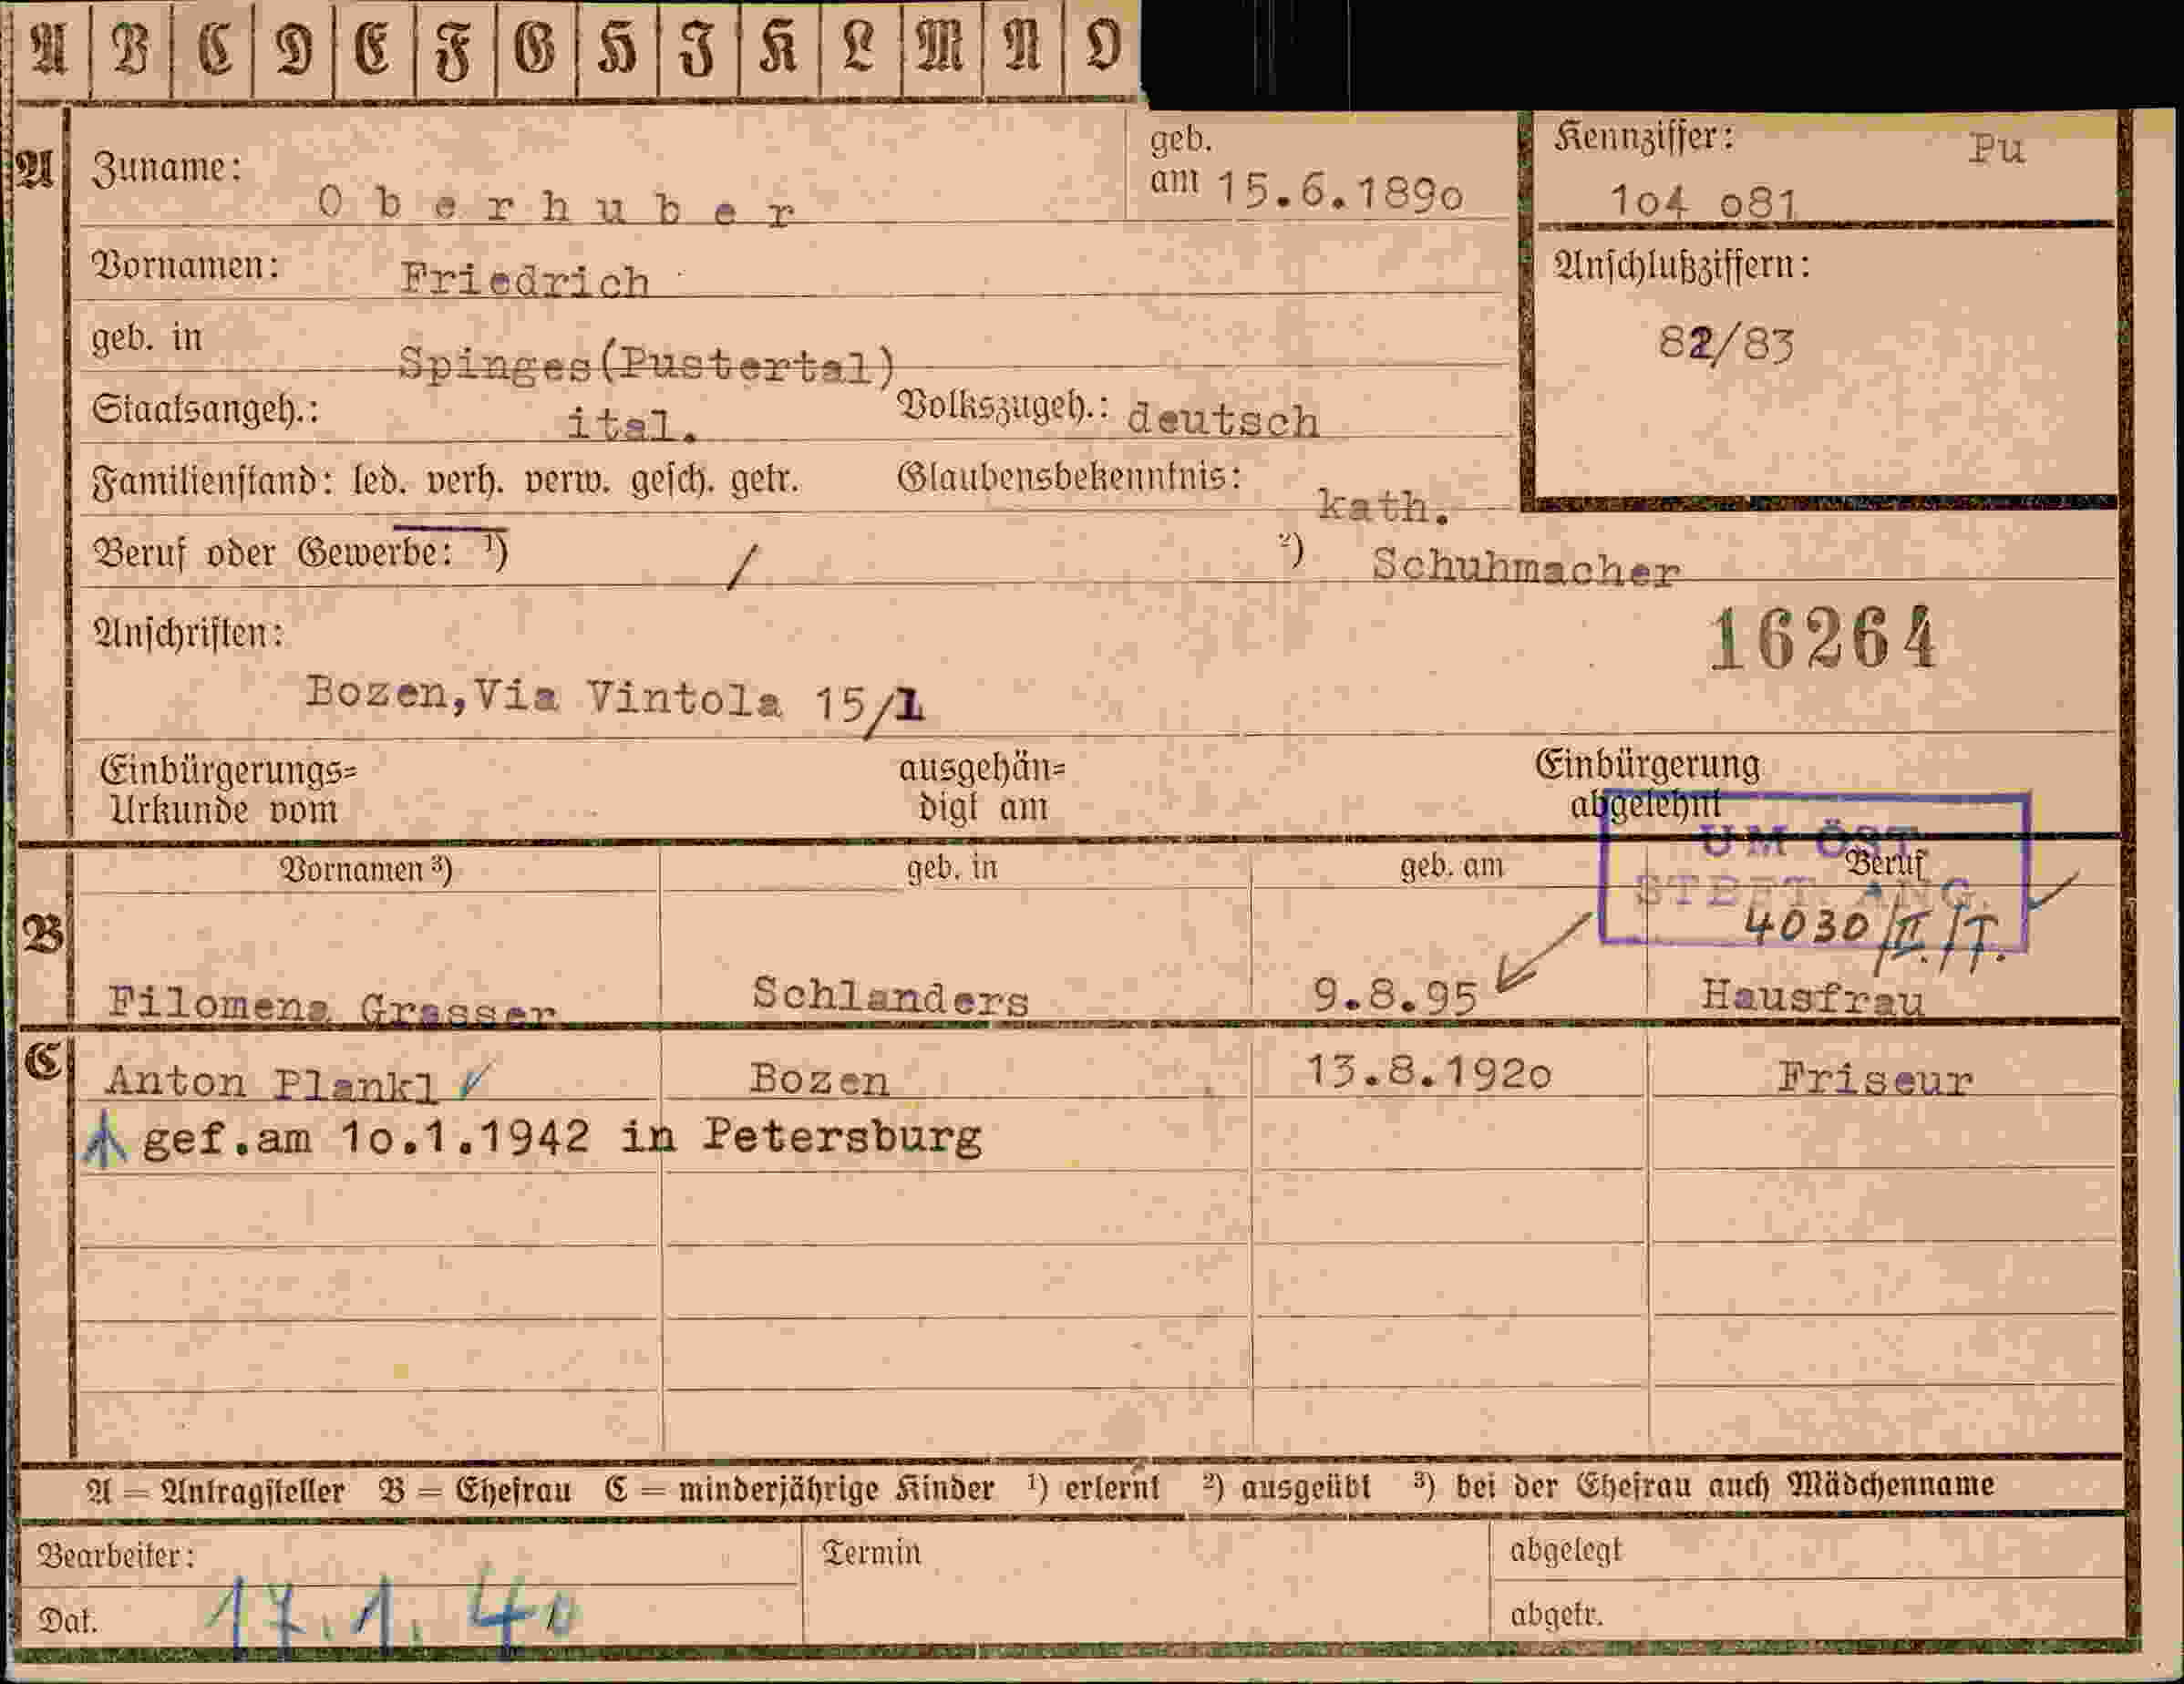 A B C D E F G H J K L M N O
A
Zuname: Oberhuber
geb. am 15.6.1890
Kennziffer: Pu
104 081
Vornamen: Friedrich
Anschlußziffern:
82/83
geb. in Spinges(Pustertal)
Staatsangeh.: ital. Volkszugeh.: deutsch
Familienstand: led. verh. verw. gesch. getr. Glaubensbekenntnis: kath.
Beruf oder Gewerbe: ¹) / ²) Schuhmacher
Anschriften:
16264
Bozen,Via Vintola 15/1
Einbürgerungs= ausgehän= Einbürgerung
Urkunde vom digt am abgelehnt
UM ÖST.
STBFT. ANG.
4030/II./T.
B
Vornamen ³) geb. in geb. am Beruf
Filomena Grasser Schlanders 9.8.95 Hausfrau
C
Anton Plankl Bozen 13.8.1920 Friseur
gef.am 10.1.1942 in Petersburg
A = Antragsteller B = Ehefrau C = minderjährige Kinder ¹) erlernt ²) ausgeübt ³) bei der Ehefrau auch Mädchenname
Bearbeiter: Termin abgelegt
Dat. 17.1.40 abgetr.